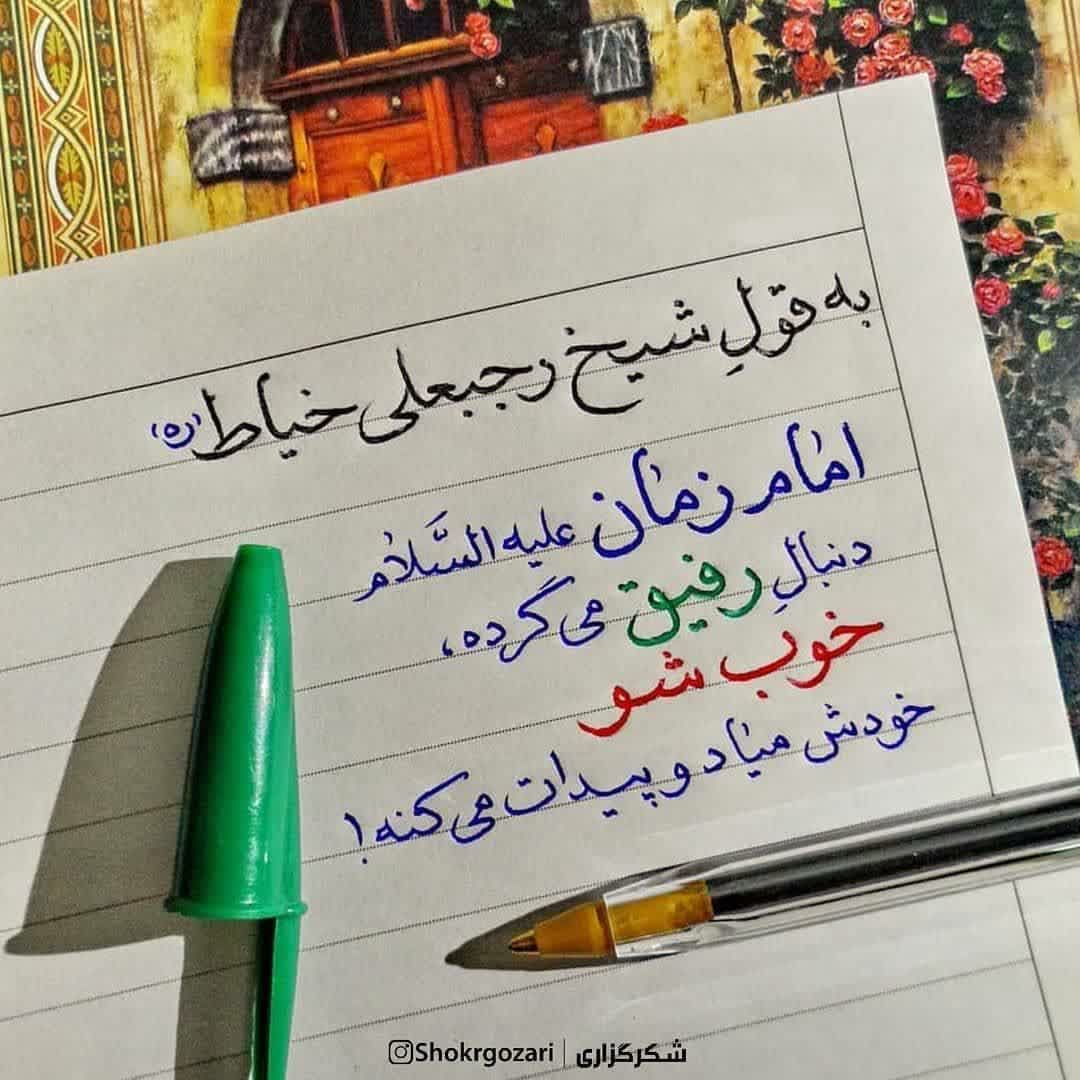 به قولِ شیخ رجبعلی خیاط (ره)
امام زمان علیه السَّلام
دنبالِ رفیق می گرده،
خوب شو
خودش میاد و پیدات می کنه!
Shokrgozari | شکرگزاری